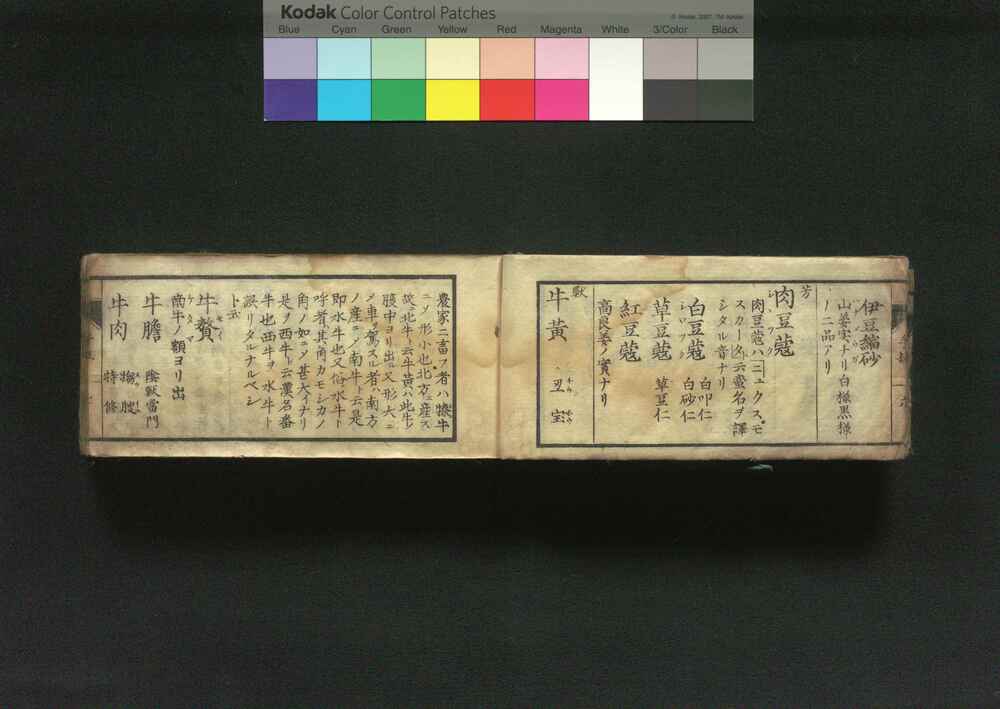 Kodak Color Control Patches
© Kodak, 2007, TM: Kodak
Blue Cyan Green Yellow Red Magenta White 3/Color Black
伊豆縮砂
山姜実ナリ白様黒様
ノ二品アリ
芳
肉豆蔻
肉豆蔻ハニュクスモ
スカータト云蛮名ヲ譯
シタル音ナリ
白豆蔻 白叩仁
白砂仁
草豆蔻 草豆仁
紅豆蔻
高良姜ノ實ナリ
獸
牛黄 丑宝
農家ニ畜フ者ハ犠牛
ニソ形小也北方ニ産ス
故北牛ト云牛黄ハ此牛ノ
腹中ヨリ出ル又形大ニ
〆車ヲ駕スル者ハ南方
ノ産ニ〆南牛ト云是
即水牛也又俗水牛ト
呼者其角カモシカノ
角ノ如ニ〆甚大イナリ
是ヲ西牛ト云漢名番
牛也西牛ヲ水牛ト
誤リタルナルベシ
ト云
牛贅
南牛ノ額ヨリ出
牛膽 陰獸當門
牛肉
特 脩